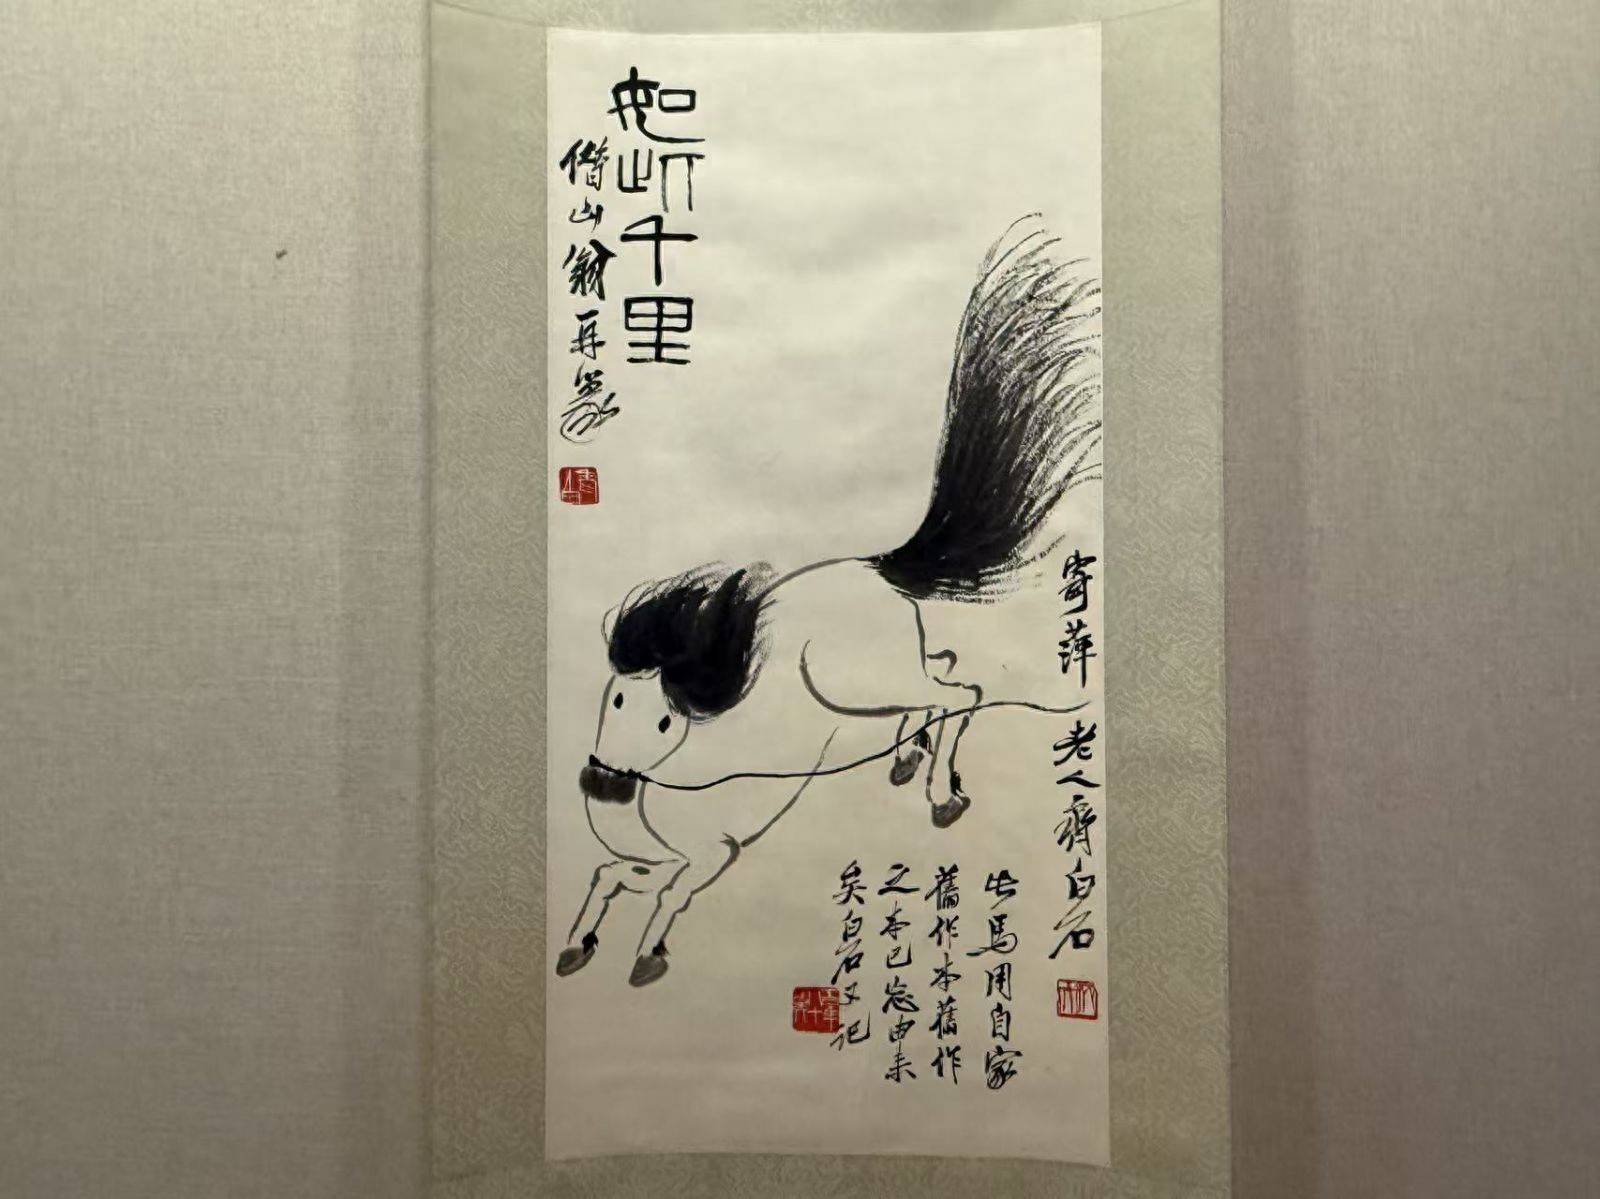 如此千里
借山翁再篆
寄萍老人齊白石
此馬用自家
舊作本舊作
之本已忘由来
矣白石又記